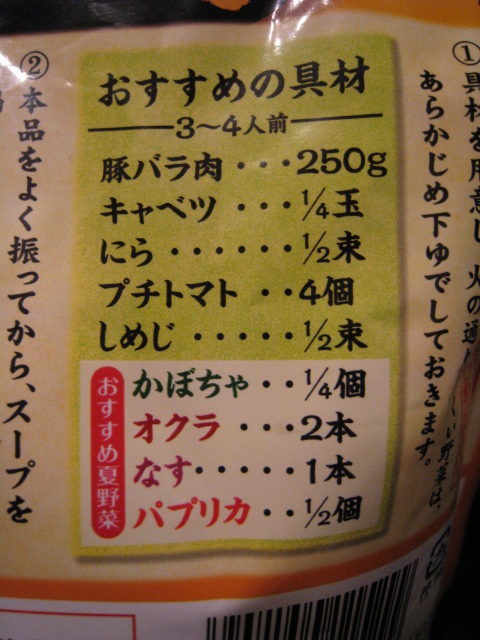 ①具材を用意し、火の通り
くい野菜は、
あらかじめ下ゆでしておきます。
おすすめの具材
3〜4人前
豚バラ肉・・・250g
キャベツ・・・1/4玉
にら・・・・・・1/2束
プチトマト・・4個
しめじ・・・・・1/2束
おすすめ夏野菜
かぼちゃ・・1/4個
オクラ・・・2本
なす・・・・・1本
パプリカ・・1/2個
②本品をよく振ってから、スープを